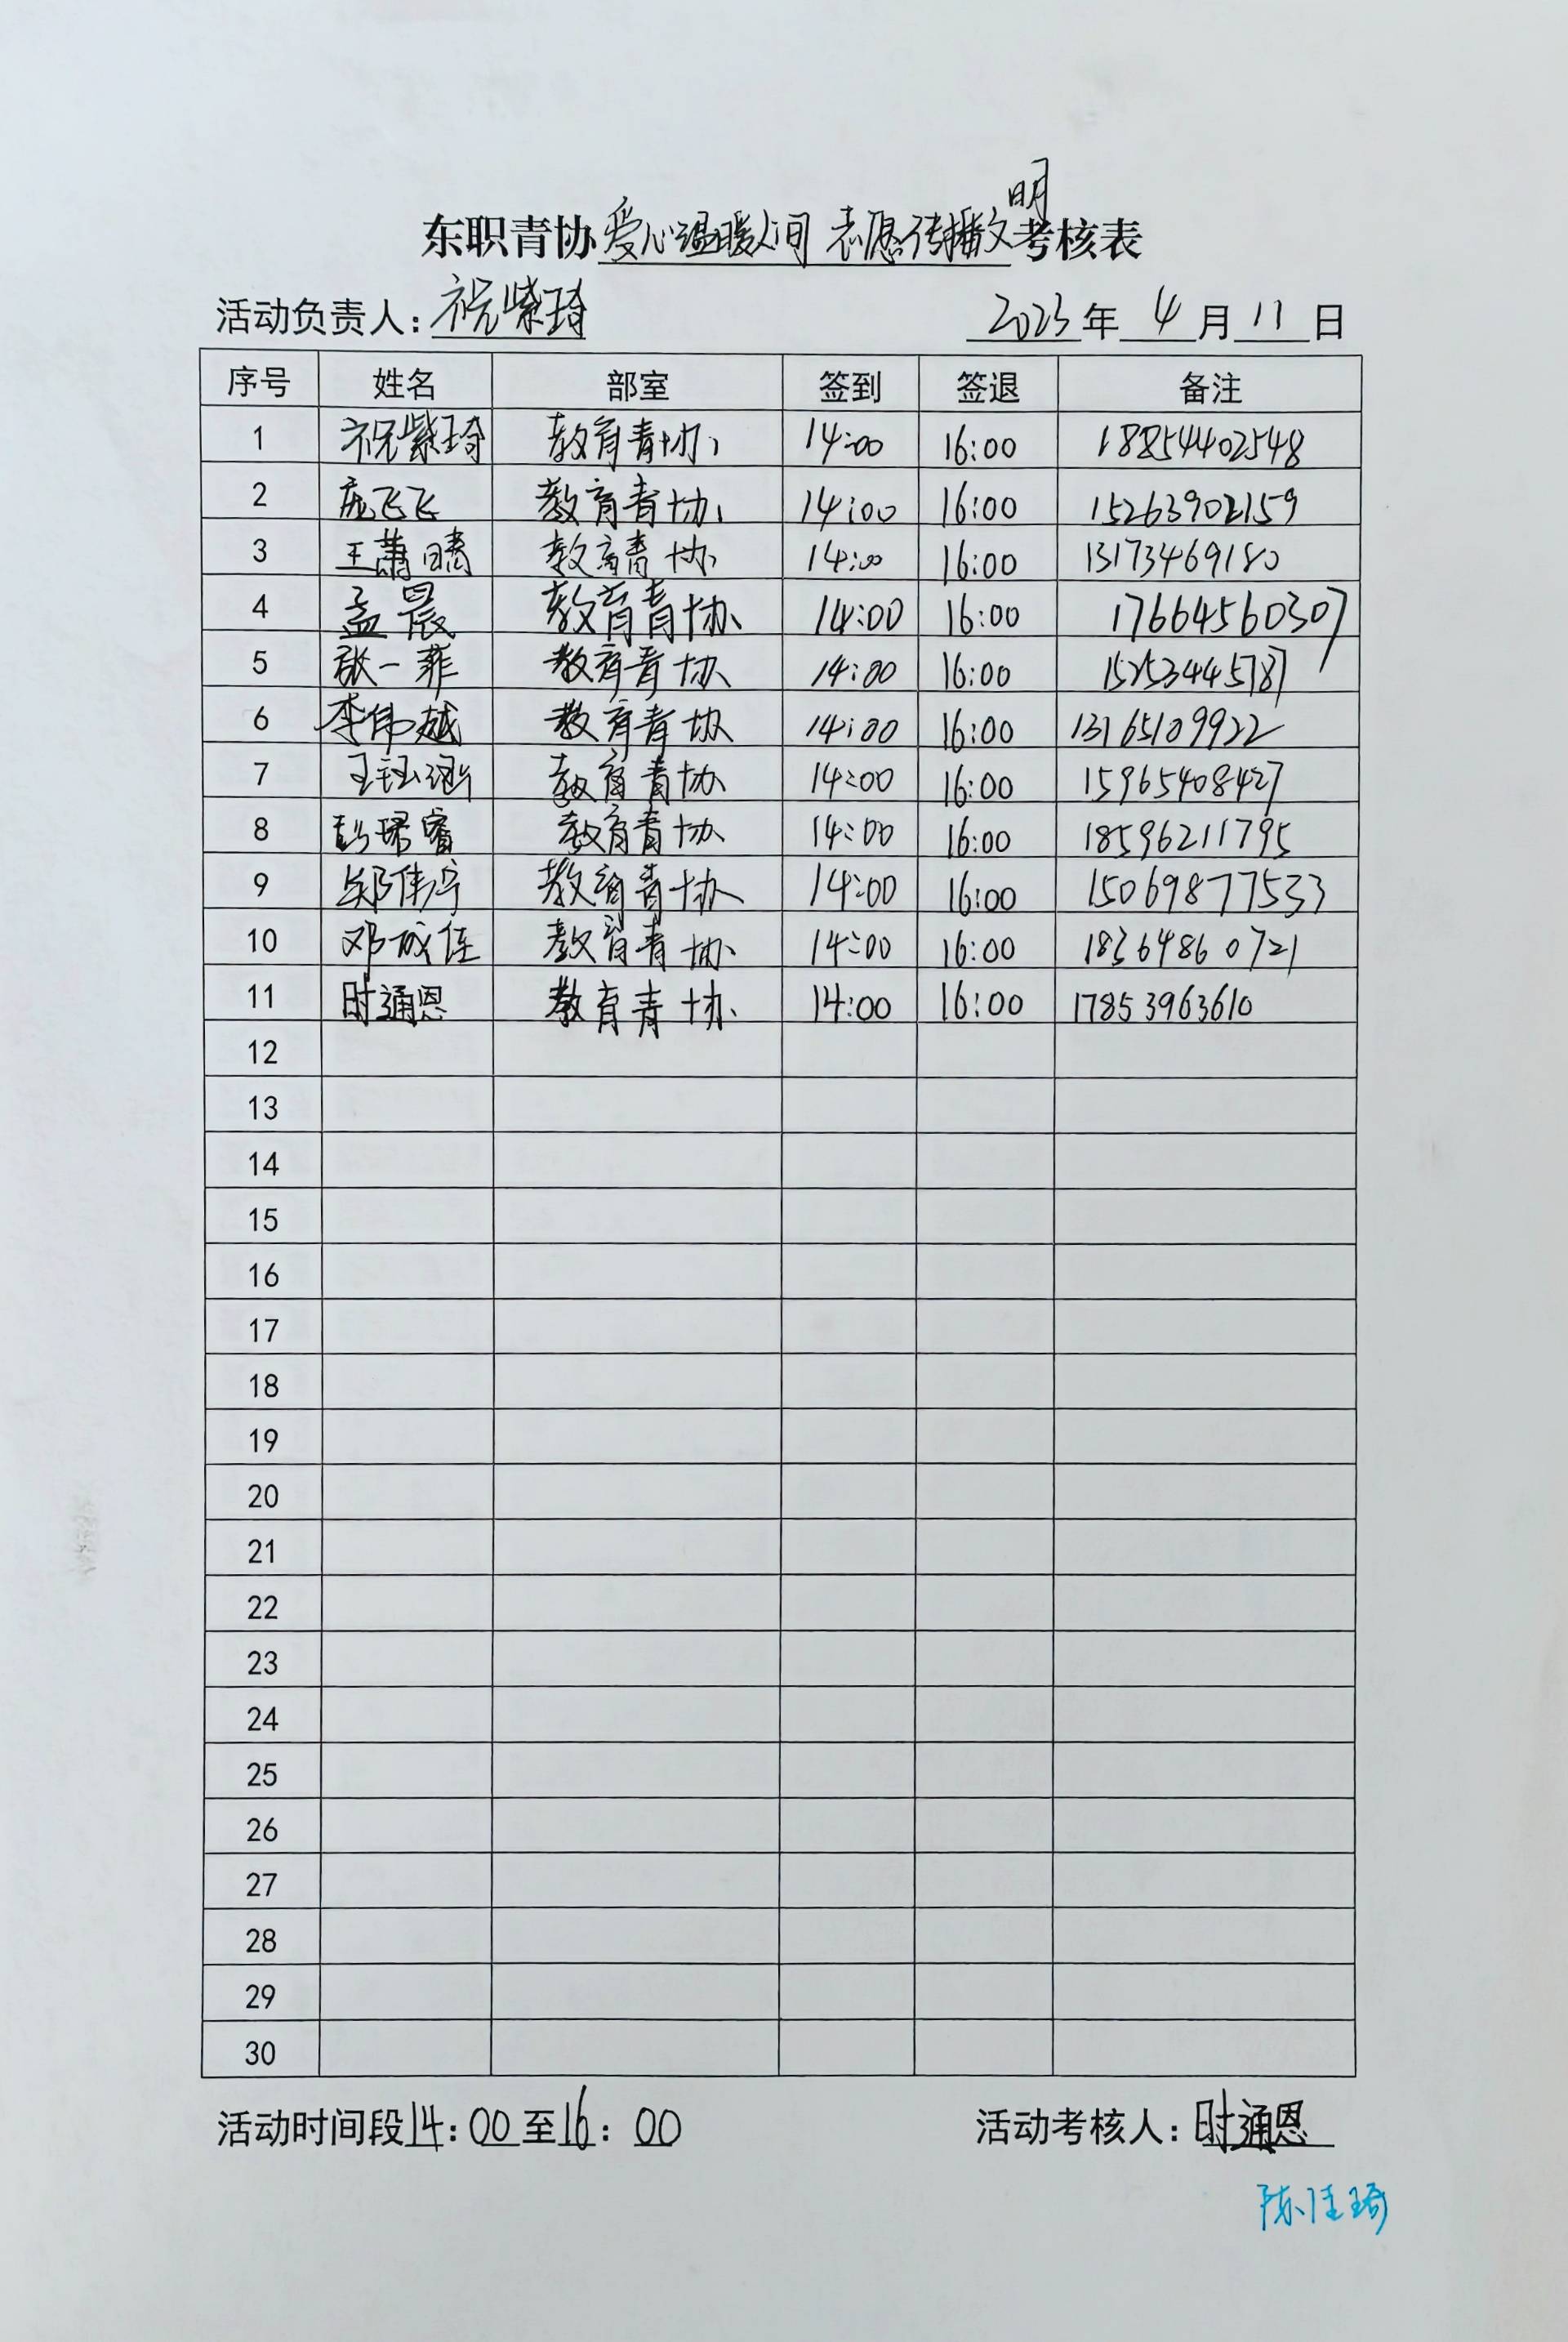 东职青协爱心温暖人间 志愿传播文明考核表
活动负责人:祝紫琦 2023年4月11日
序号 姓名 部室 签到 签退 备注
1 祝紫琦 教育青协 14:00 16:00 18854402548
2 庞飞飞 教育青协 14:00 16:00 15263902159
3 王萧晴 教育青协 14:00 16:00 13173469180
4 孟晨 教育青协 14:00 16:00 17664560307
5 张一菲 教育青协 14:00 16:00 15253445787
6 李伟越 教育青协 14:00 16:00 13165109922
7 王钰涵 教育青协 14:00 16:00 15965408427
8 彭琚睿 教育青协 14:00 16:00 18596211795
9 郑伟宁 教育青协 14:00 16:00 15069877533
10 邓成佳 教育青协 14:00 16:00 18364860721
11 时通恩 教育青协 14:00 16:00 17853963610
12
13
14
15
16
17
18
19
20
21
22
23
24
25
26
27
28
29
30
活动时间段14:00至16:00 活动考核人:时通恩
陈佳琦